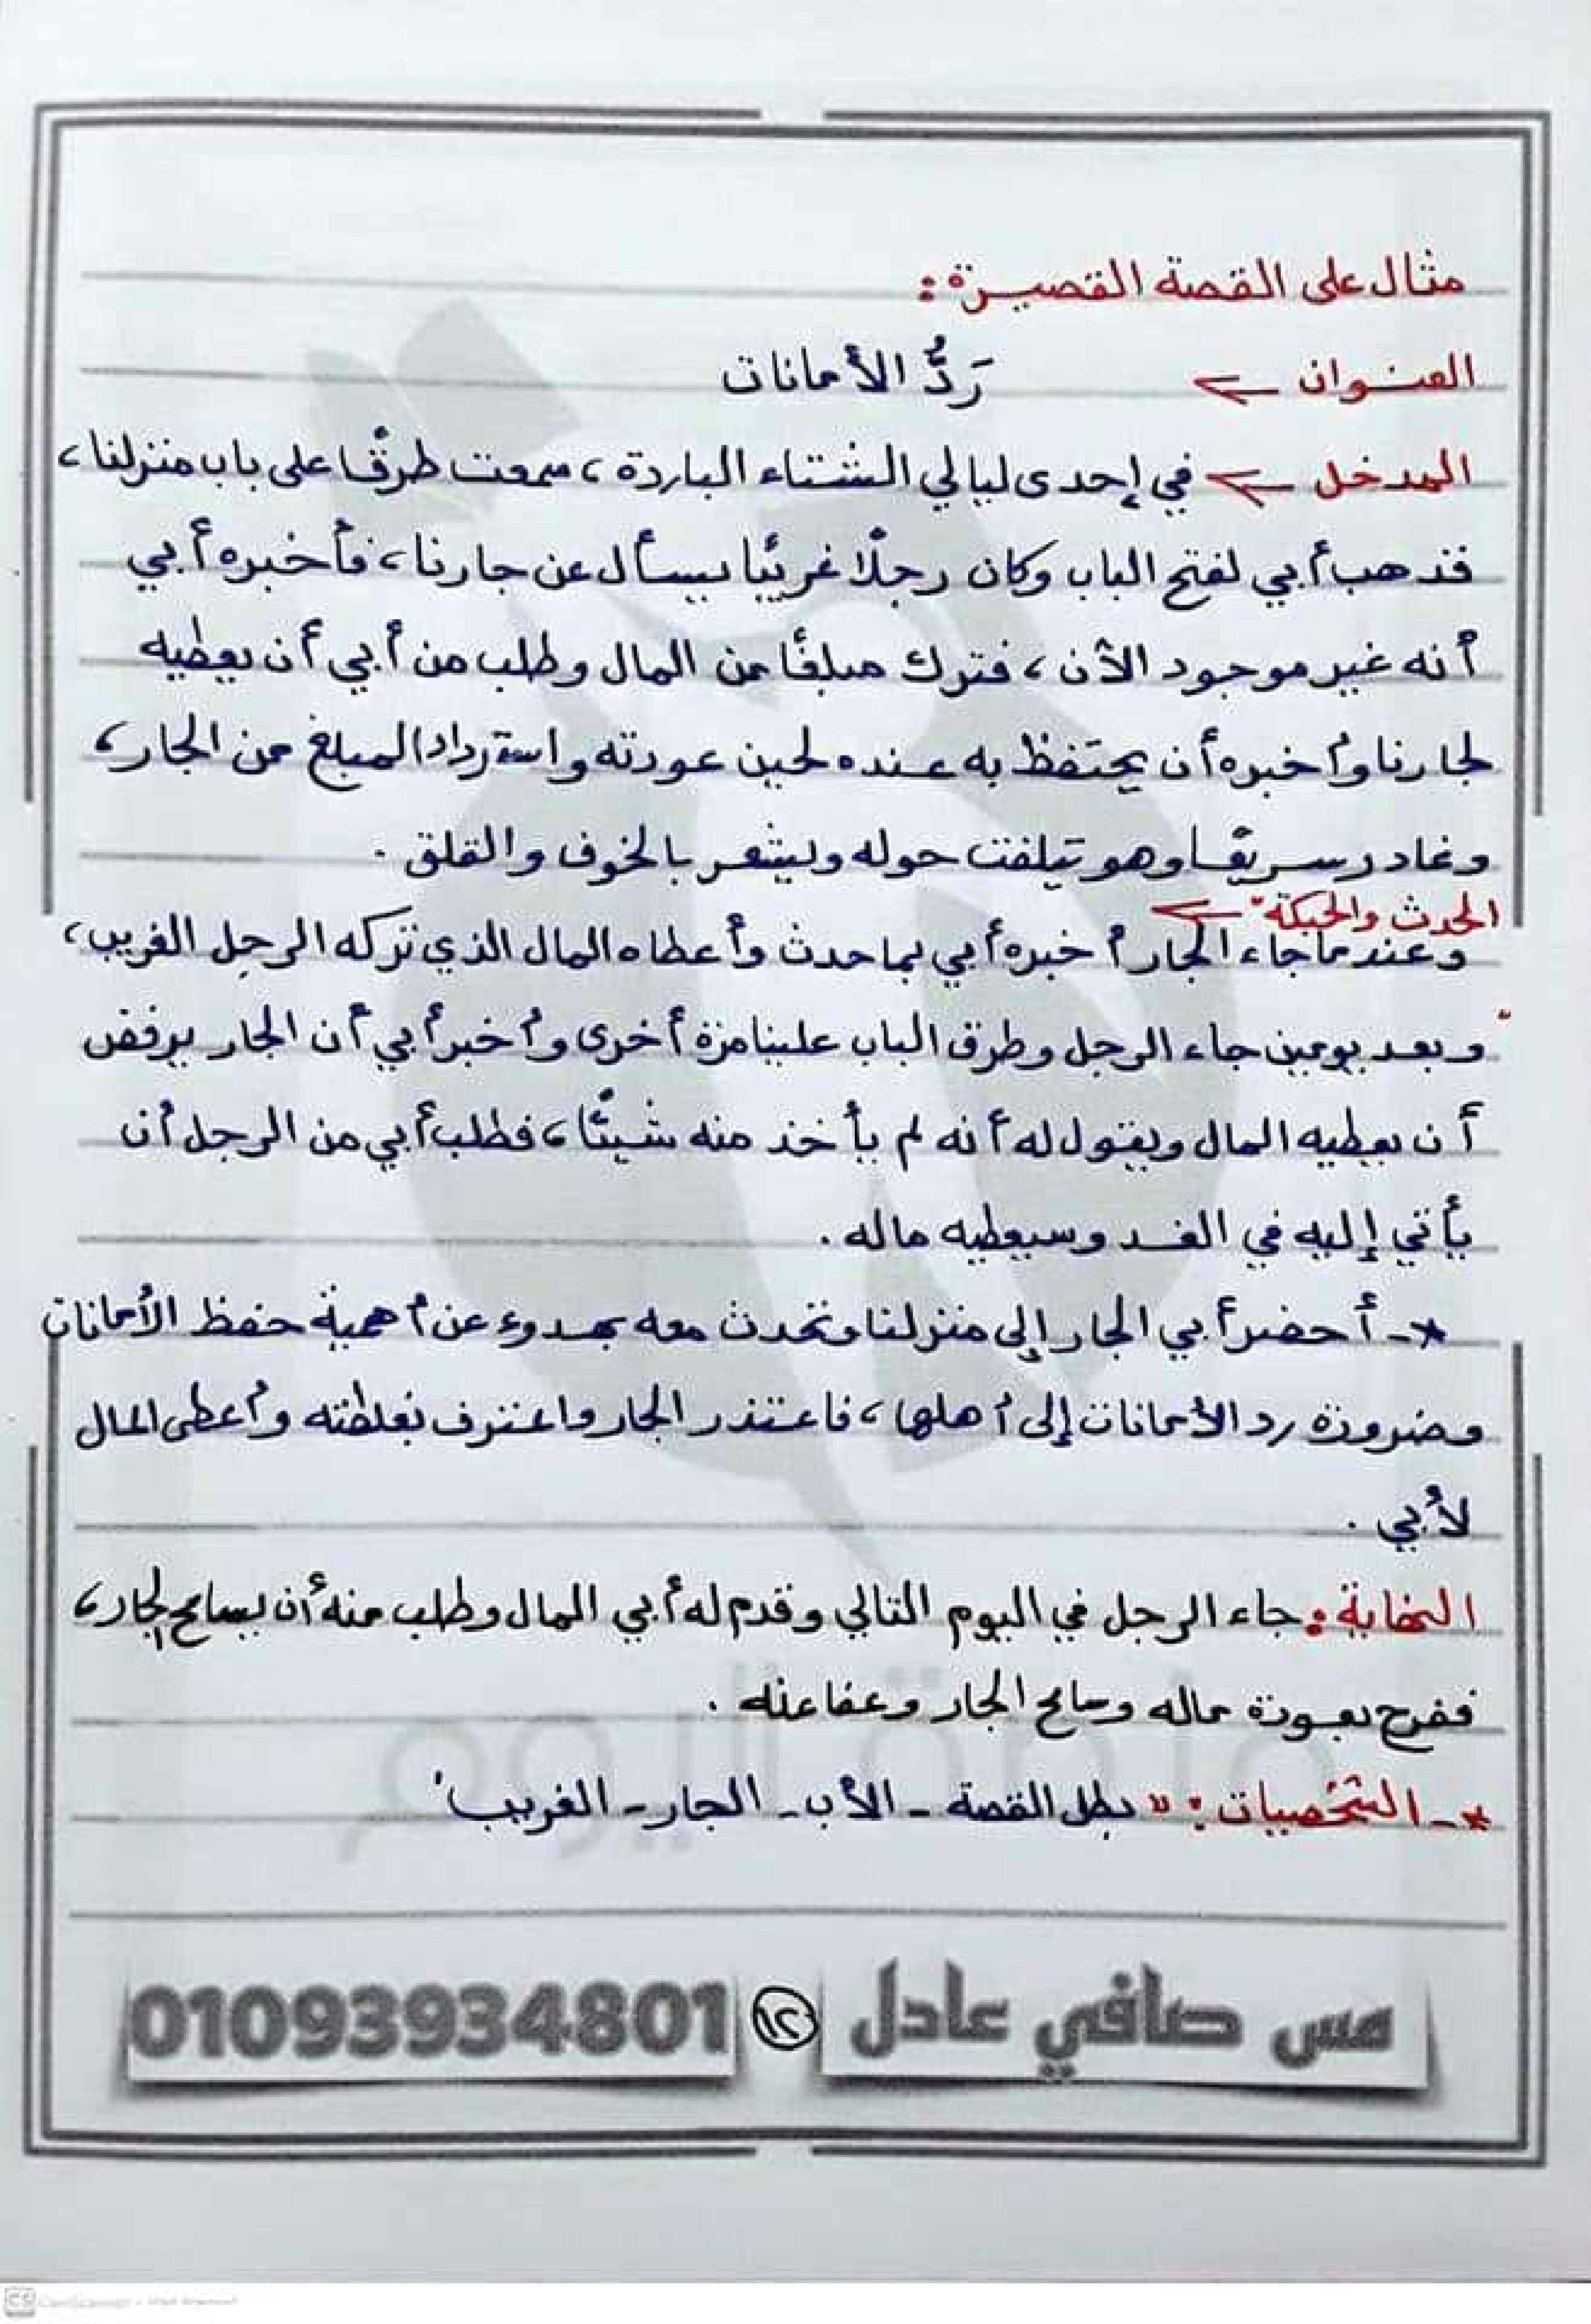 مثال على القصة القصيرة:
العنوان ← رَدُّ الأمانات
المدخل ← في إحدى ليالي الشتاء الباردة، سمعت طرقًا على باب منزلنا،
فذهب أبي لفتح الباب وكان رجلًا غريبًا يسأل عن جارنا، فأخبره أبي
أنه غير موجود الآن، فترك مبلغًا من المال وطلب من أبي أن يعطيه
لجارنا وأخبره أن يحتفظ به عنده لحين عودته واسترداد المبلغ من الجار،
وغادر سريعًا وهو يتلفت حوله ويشعر بالخوف والقلق .
الحدث والحبكة ←
وعندما جاء الجار أخبره أبي بما حدث وأعطاه المال الذي تركه الرجل الغريب،
وبعد يومين جاء الرجل وطرق الباب علينا مرة أخرى وأخبر أبي أن الجار يرفض
أن يعطيه المال ويقول له أنه لم يأخذ منه شيئًا، فطلب أبي من الرجل أن
يأتي إليه في الغد وسيعطيه ماله .
*- أحضر أبي الجار إلى منزلنا وتحدث معه بهدوء عن أهمية حفظ الأمانات
وضرورة رد الأمانات إلى أهلها، فاعتذر الجار واعترف بغلطته وأعطى المال
لأبي .
النهاية: جاء الرجل في اليوم التالي وقدم له أبي المال وطلب منه أن يسامح الجار،
ففرح بعودة ماله وسامح الجار وعفا عنه .
*- الشخصيات: " بطل القصة - الأب - الجار - الغريب"
مس صافي عادل ١٢ 01093934801